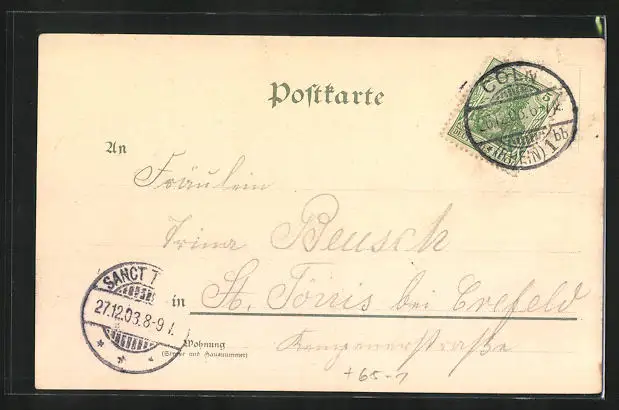 Postkarte
CÖLN
(RHEIN) 1 bb
An
Fräulein
Trina Beusch
in St. Tönis bei Crefeld
SANCT T
27.12.03.8-9
Wohnung
(Strasse und Hausnummer)
Kempenerstraße
+65-1